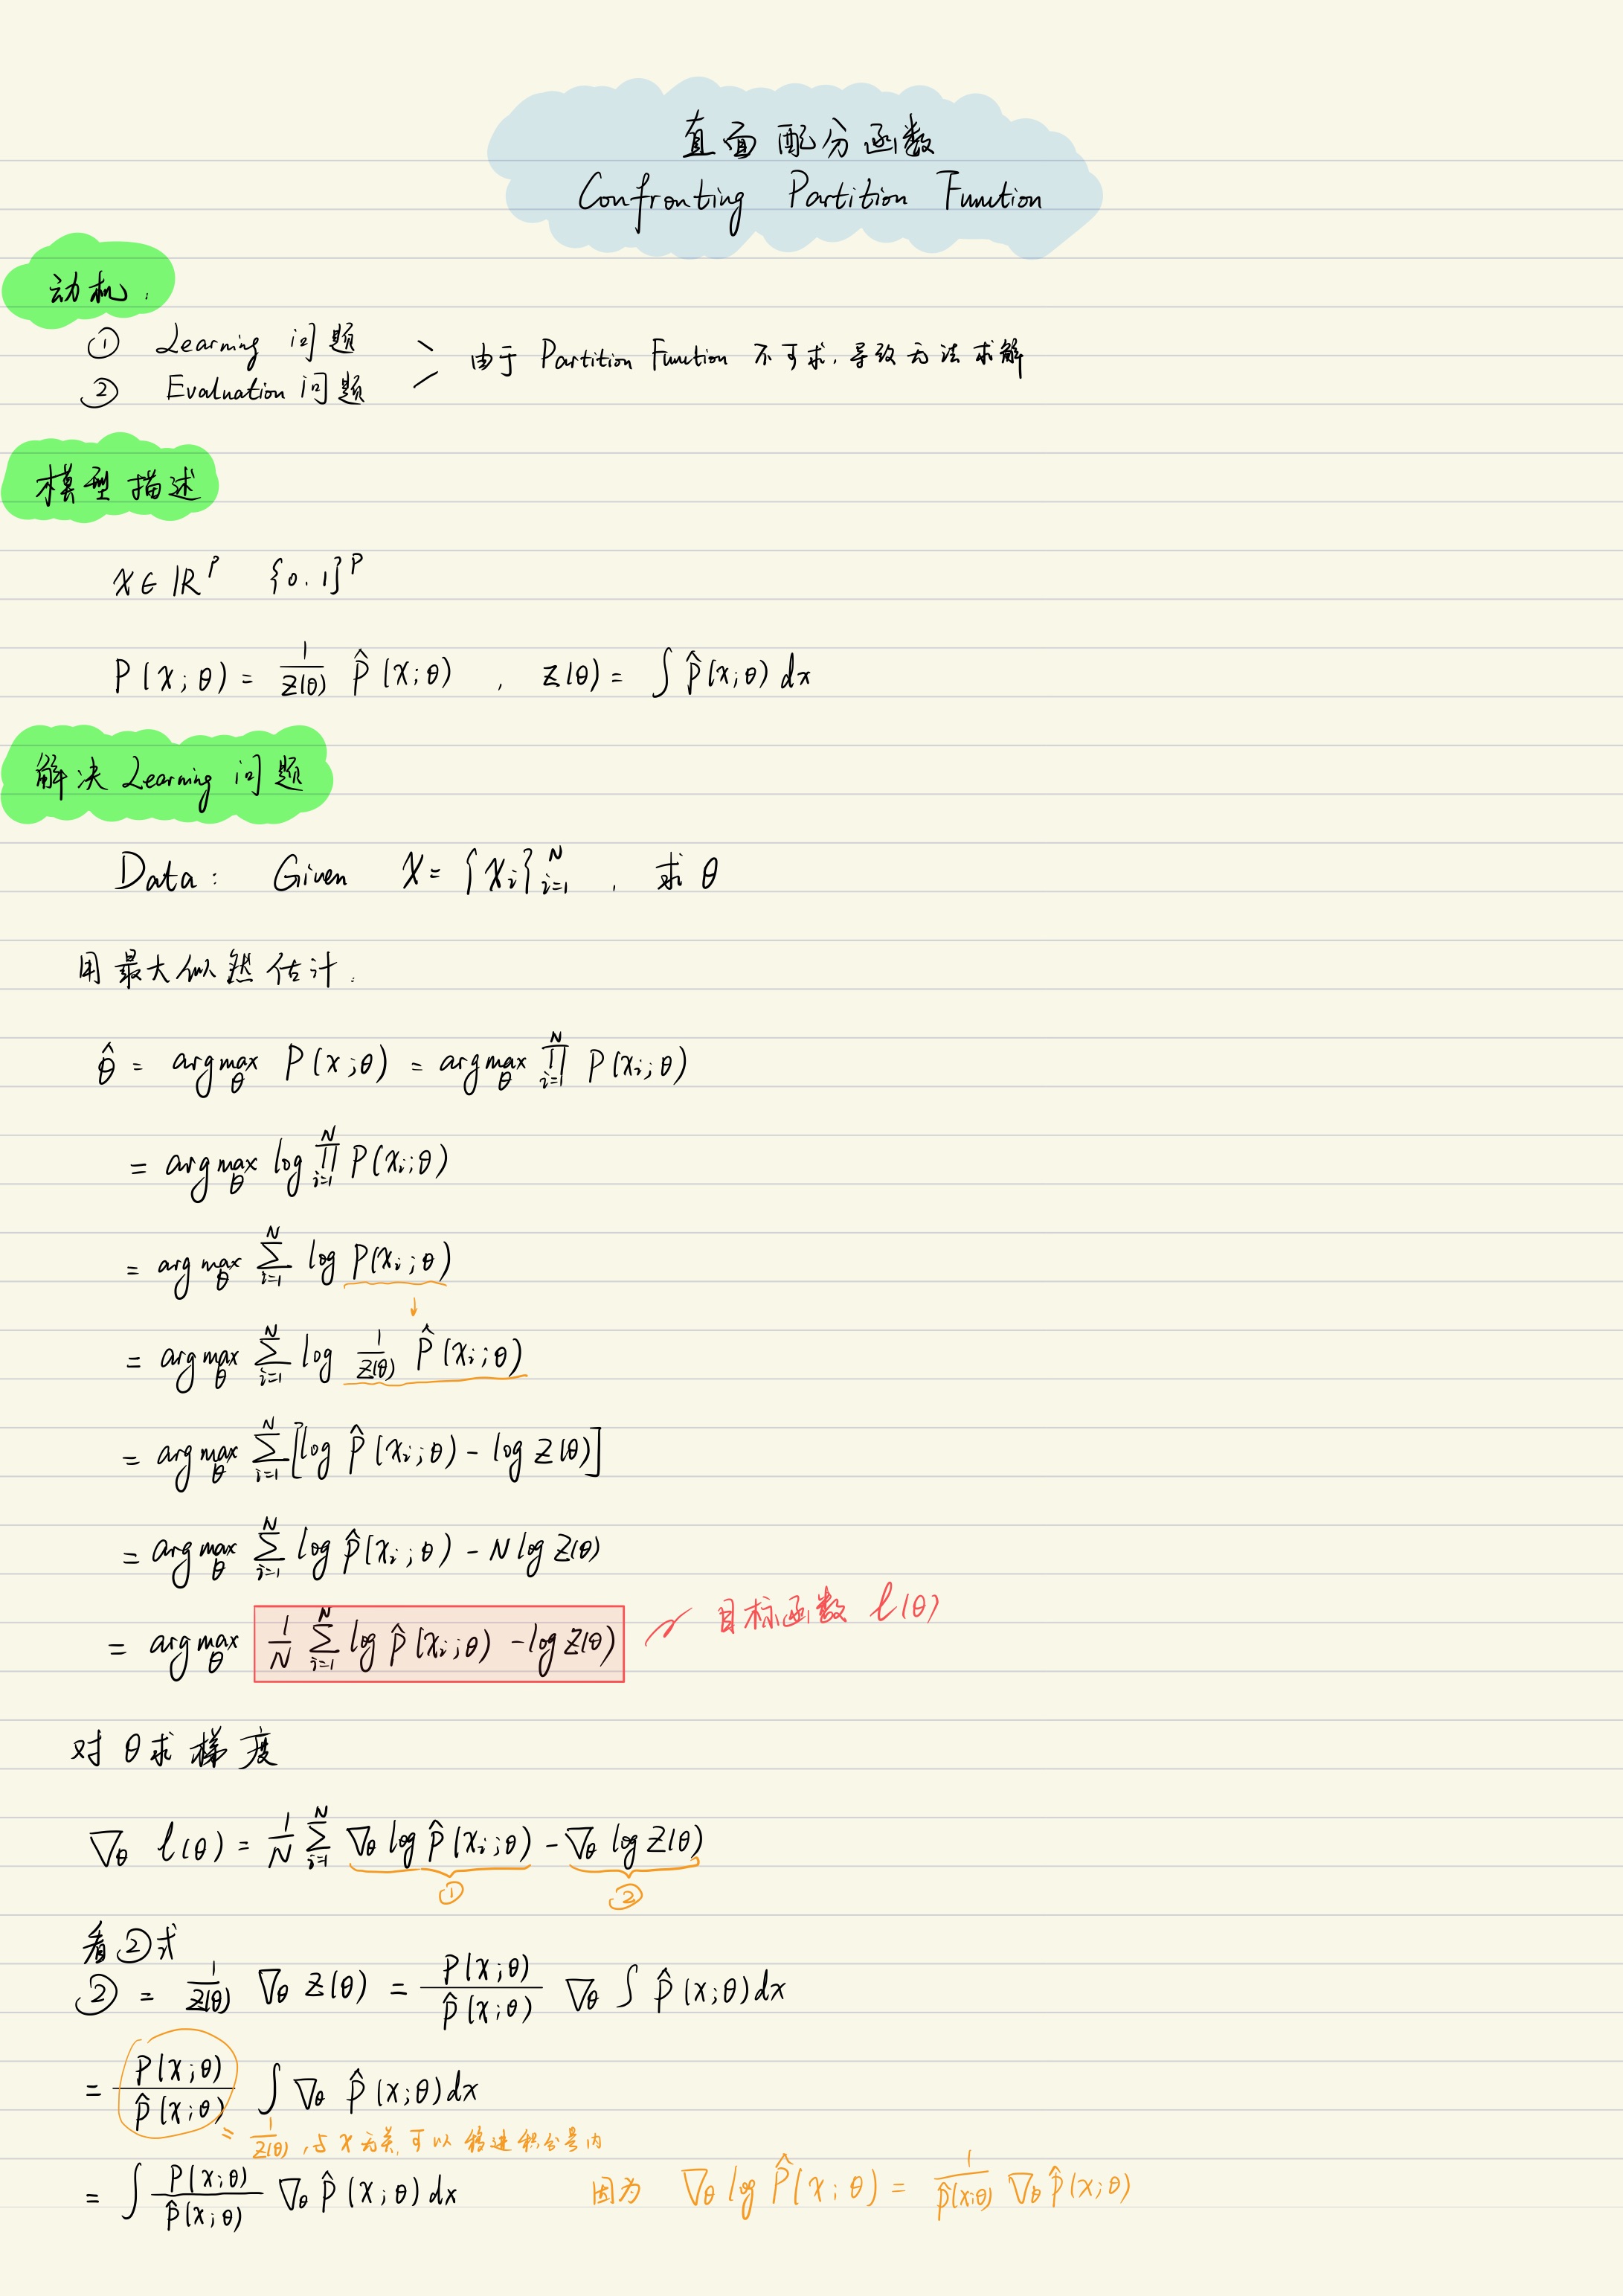 直面配分函数
Confronting Partition Function
动机:
① Learning 问题
② Evaluation 问题
由于 Partition Function 不可求, 导致无法求解
模型描述
x ∈ ℝᵖ {0,1}ᵖ
P(x;θ) = 1/Z(θ) P̂(x;θ) , Z(θ) = ∫ P̂(x;θ) dx
解决 Learning 问题
Data: Given X = {xᵢ}ᵢ₌₁ᴺ , 求 θ
用最大似然估计:
θ̂ = argmax_θ P(x;θ) = argmax_θ ∏ᵢ₌₁ᴺ P(xᵢ;θ)
= argmax_θ log ∏ᵢ₌₁ᴺ P(xᵢ;θ)
= argmax_θ ∑ᵢ₌₁ᴺ log P(xᵢ;θ)
↓
= argmax_θ ∑ᵢ₌₁ᴺ log 1/Z(θ) P̂(xᵢ;θ)
= argmax_θ ∑ᵢ₌₁ᴺ [log P̂(xᵢ;θ) - log Z(θ)]
= argmax_θ ∑ᵢ₌₁ᴺ log P̂(xᵢ;θ) - N log Z(θ)
= argmax_θ 1/N ∑ᵢ₌₁ᴺ log P̂(xᵢ;θ) - log Z(θ) 目标函数 ℓ(θ)
对 θ 求梯度
∇_θ ℓ(θ) = 1/N ∑ᵢ₌₁ᴺ ∇_θ log P̂(xᵢ;θ) - ∇_θ log Z(θ)
① ②
看②式
② = 1/Z(θ) ∇_θ Z(θ) = P(x;θ)/P̂(x;θ) ∇_θ ∫ P̂(x;θ) dx
= P(x;θ)/P̂(x;θ) ∫ ∇_θ P̂(x;θ) dx
= 1/Z(θ) , 与 x 无关, 可以移进积分号内
= ∫ P(x;θ)/P̂(x;θ) ∇_θ P̂(x;θ) dx 因为 ∇_θ log P̂(x;θ) = 1/P̂(x;θ) ∇_θ P̂(x;θ)